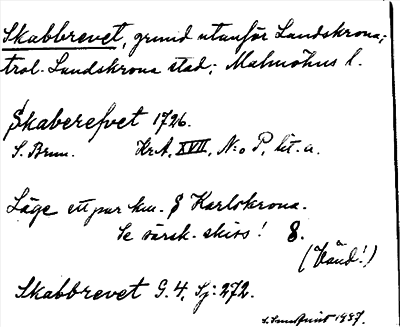 Skabbrevet, grund utanför Landskrona;
trol. Landskrona stad; Malmöhus l.
Skaberefvet 1726.
S. Brun. Kr.A. XVII, N:o P, lit. a.
Läge ett par km. S Karlskrona.
Se särsk. skiss! S.
(Vänd!)
Skabbrevet G. 4, Sj: 272.
1937.